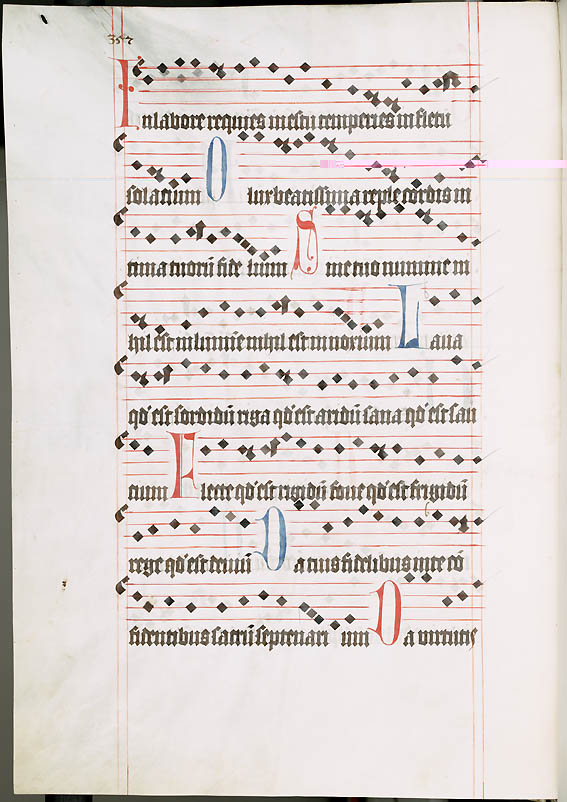 357
In labore requies in estu temperies in fletu
solacium O lux beatissima reple cordis in
tima tuorū fide lium Sine tuo numine ni
hil est in lumīe nihil est innoxium Laua
qd' est sordidū riga qd' est aridū sana qd' est sau
cium Flecte qd' est rigidū foue qd' est frigidū
rege qd' est deuiū Da tuis fidelibus in te cō
fidentibus sacrū septenari um Da virtutis